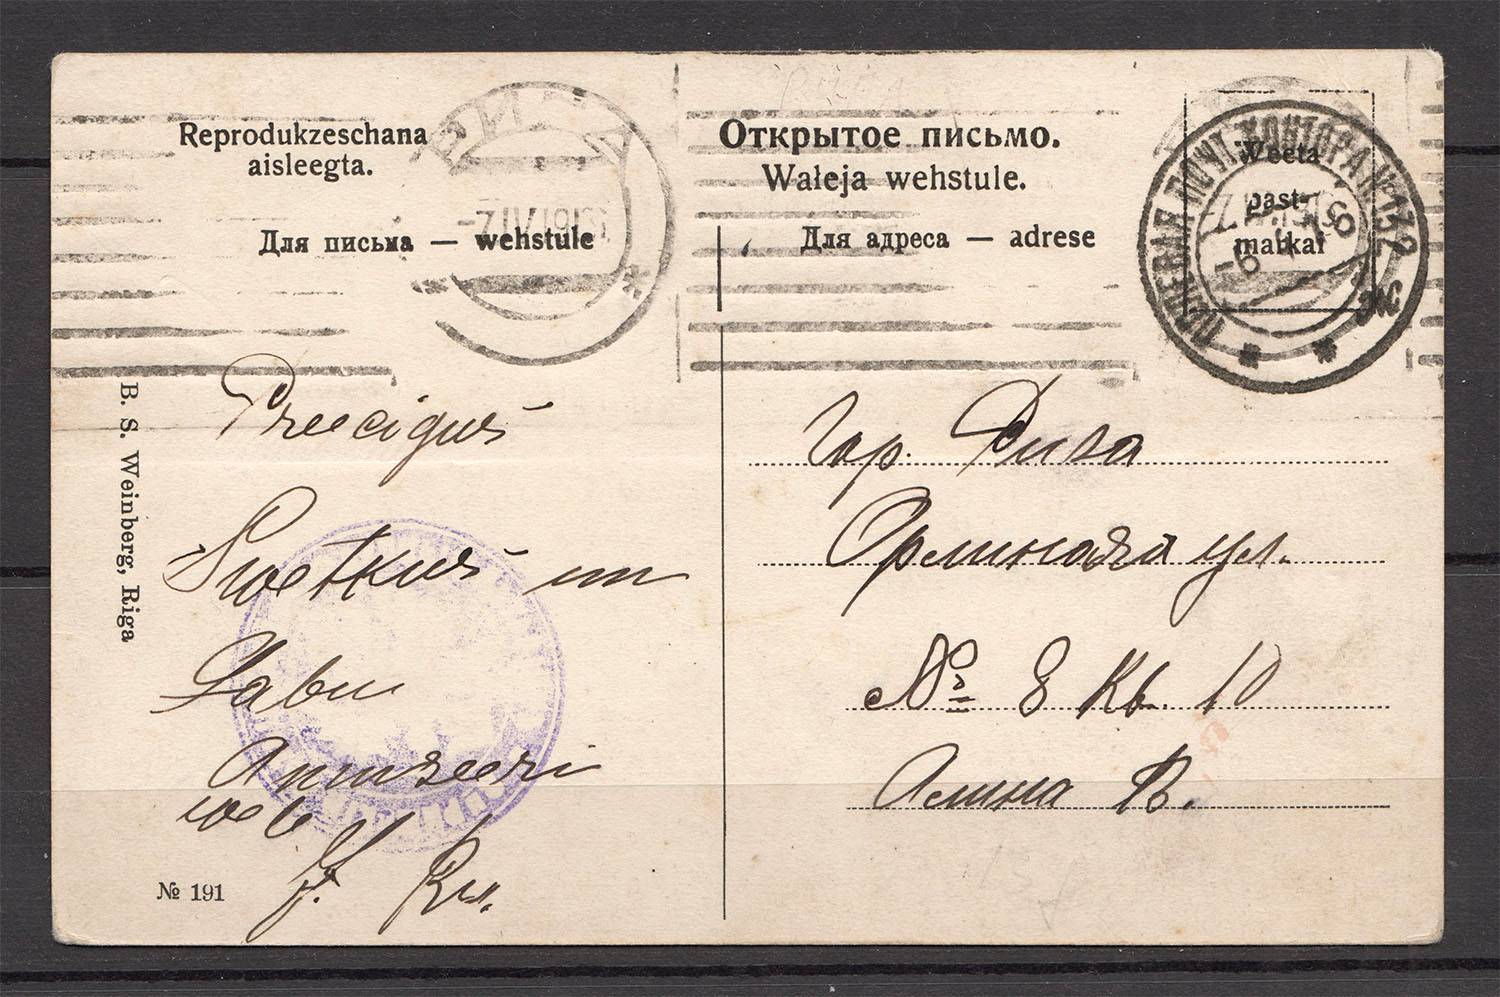 Reprodukzeschana
aisleegta.
Для письма — wehstule
Открытое письмо.
Wałeja wehstule.
Для адреса — adrese
Weeta
past-
markai
РИГА
-7 IV 1916
ПОЛЕВАЯ ПОЧТ. КОНТОРА № 132
B. S. Weinberg, Riga
Preecigus
Swetkus un
Labu
web
J.
Гор. Рига
Орлиная ул.
№ 8 Кв. 10
Алина В.
№ 191